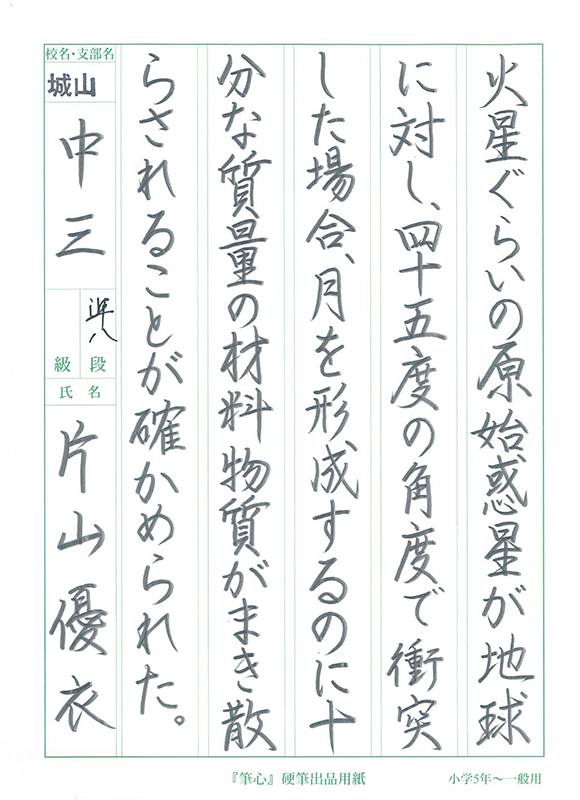 火星ぐらいの原始惑星が地球
に対し、四十五度の角度で衝突
した場合、月を形成するのに十
分な質量の材料物質がまき散
らされることが確かめられた。
校名・支部名
城山
中三
準八
段
級
氏名
片山優衣
『筆心』硬筆出品用紙
小学5年〜一般用